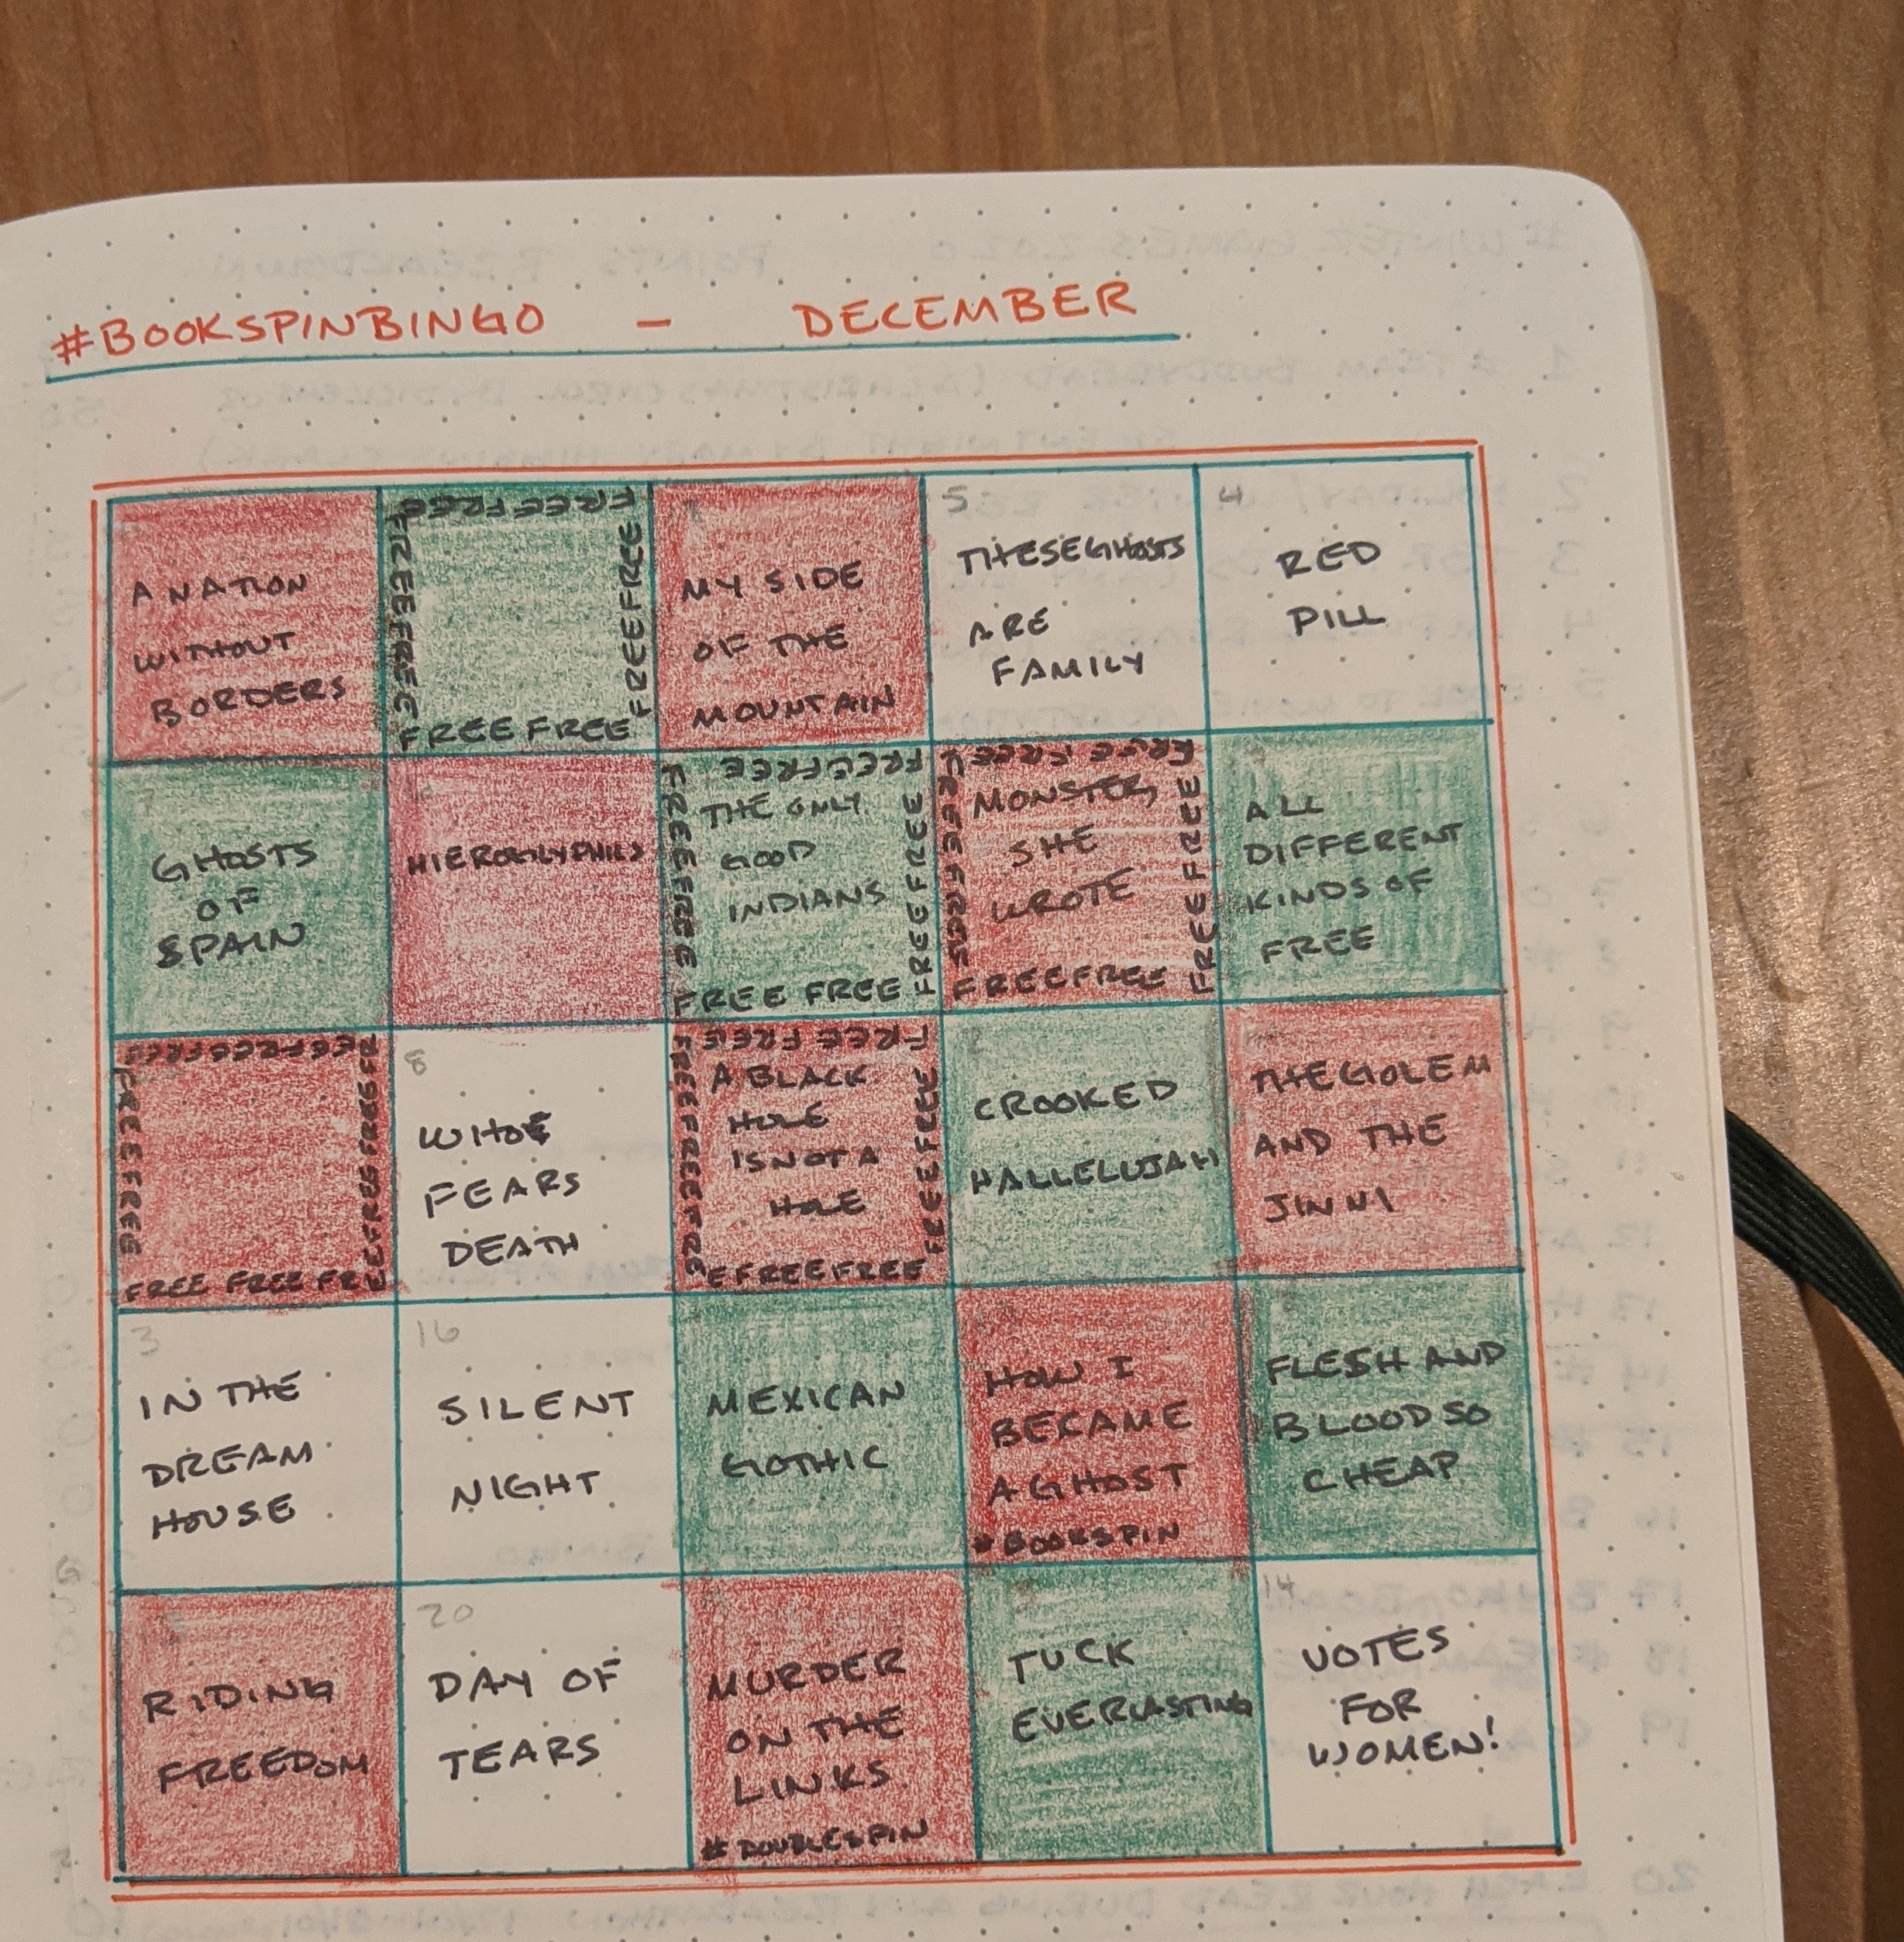 #BOOKSPINBINGO - DECEMBER
A NATION
WITHOUT
BORDERS
FREE FREE
FREE FREE
FREE FREE
FREE FREE
MY SIDE
OF THE
MOUNTAIN
5
THESE GHOSTS
ARE
FAMILY
4
RED
PILL
7
GHOSTS
OF
SPAIN
HIEROGLYPHICS
FREE FREE
FREE FREE
THE ONLY
GOOD
INDIANS
FREE FREE
FREE FREE
FREE FREE
FREE FREE
MONSTER,
SHE
WROTE
FREE FREE
FREE FREE
ALL
DIFFERENT
KINDS OF
FREE
FREE FREE
FREE FREE
FREE FREE FRE
8
WHO
FEARS
DEATH
FREE FREE
FREE FREE FRE
A BLACK
HOLE
IS NOT A
HOLE
FREE FREE
E FREE FREE
2
CROOKED
HALLELUJAH
THE GOLEM
AND THE
JINNI
3
IN THE
DREAM
HOUSE
16
SILENT
NIGHT
MEXICAN
GOTHIC
HOW I
BECAME
A GHOST
#BOOKSPIN
FLESH AND
BLOOD SO
CHEAP
RIDING
FREEDOM
20
DAY OF
TEARS
MURDER
ON THE
LINKS
#DOUBLESPIN
TUCK
EVERLASTING
14
VOTES
FOR
WOMEN!